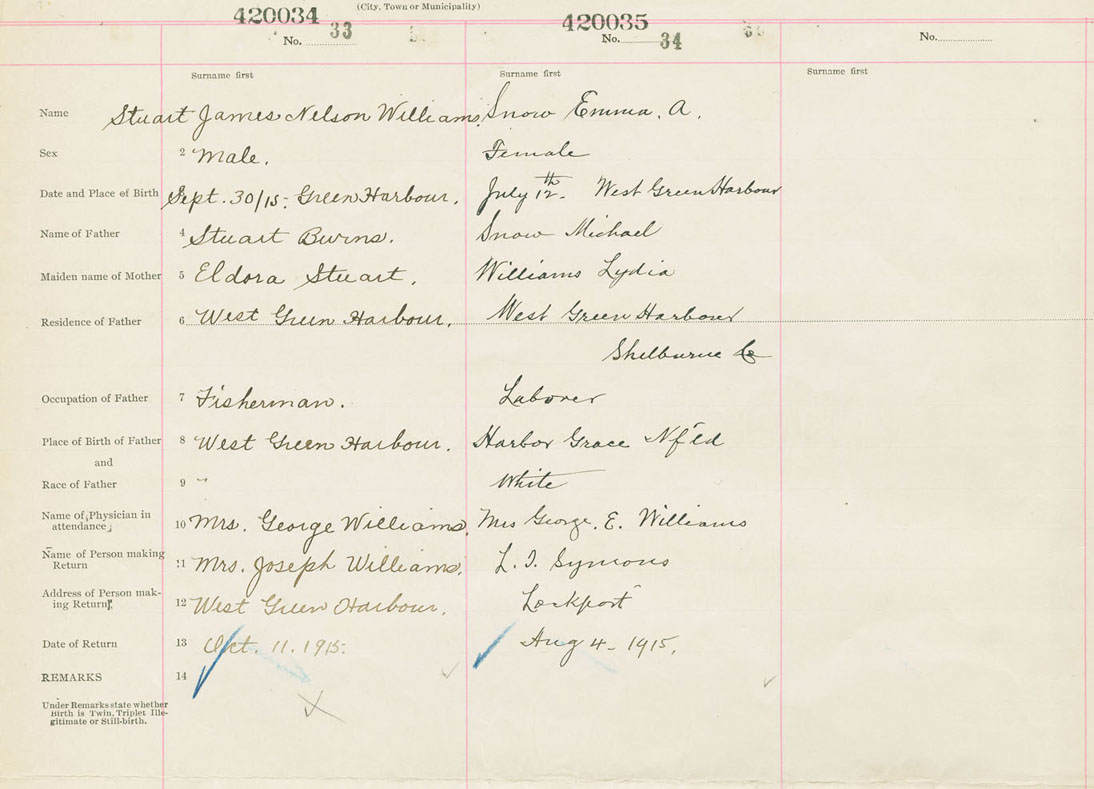 (City, Town or Municipality)
420034 420035
No. 33 No. 34 No.
Surname first Surname first Surname first
Name Stuart James Nelson Williams. Snow Emma. A.
Sex 2 Male. Female
Date and Place of Birth Sept. 30/15- Green Harbour. July 12th. West Green Harbour
Name of Father 4 Stuart Burns. Snow Michael
Maiden name of Mother 5 Eldora Stuart. Williams Lydia
Residence of Father 6 West Green Harbour. West Green Harbour
Shelburne Co
Occupation of Father 7 Fisherman. Laborer
Place of Birth of Father 8 West Green Harbour. Harbor Grace Nf'ld
and
Race of Father 9 " White
Name of Physician in
attendance 10 Mrs. George Williams. Mrs George. E. Williams
Name of Person making
Return 11 Mrs. Joseph Williams. L. I. Symons
Address of Person mak-
ing Return 12 West Green Harbour. Lockport
Date of Return 13 Oct. 11. 1915. Aug 4- 1915.
REMARKS 14
Under Remarks state whether
Birth is Twin, Triplet Ille-
gitimate or Still-birth.